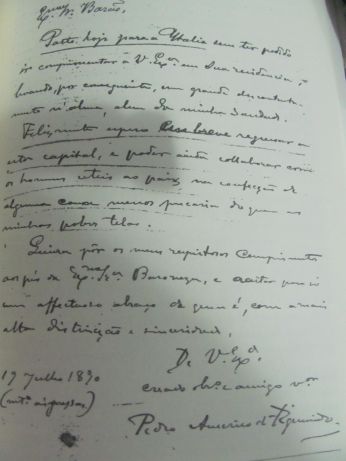 Exmo Sr. Barão,
Parto hoje para a Italia sem ter podido
ir comprimentar á V. Exa. em sua residencia,
levando, por conseguinte, um grande descontenta-
mento n'alma, alem da minha saudade.
Felizmente espero em breve regressar a
esta capital, e poder ainda collaborar com
os homens uteis ao paiz, na confecção de
alguma cousa menos precaria do que as
minhas pobres telas.
Queira pôr os meus respeitosos comprimentos
aos pés da Exma. Sra. Baroneza, e aceitar para si
um affectuoso abraço de quem é, com a mais
alta distincção e sinceridade,
De V. Exa.
19 Julho 1890
creado obro. e amigo
Pedro Americo de Figueiredo.